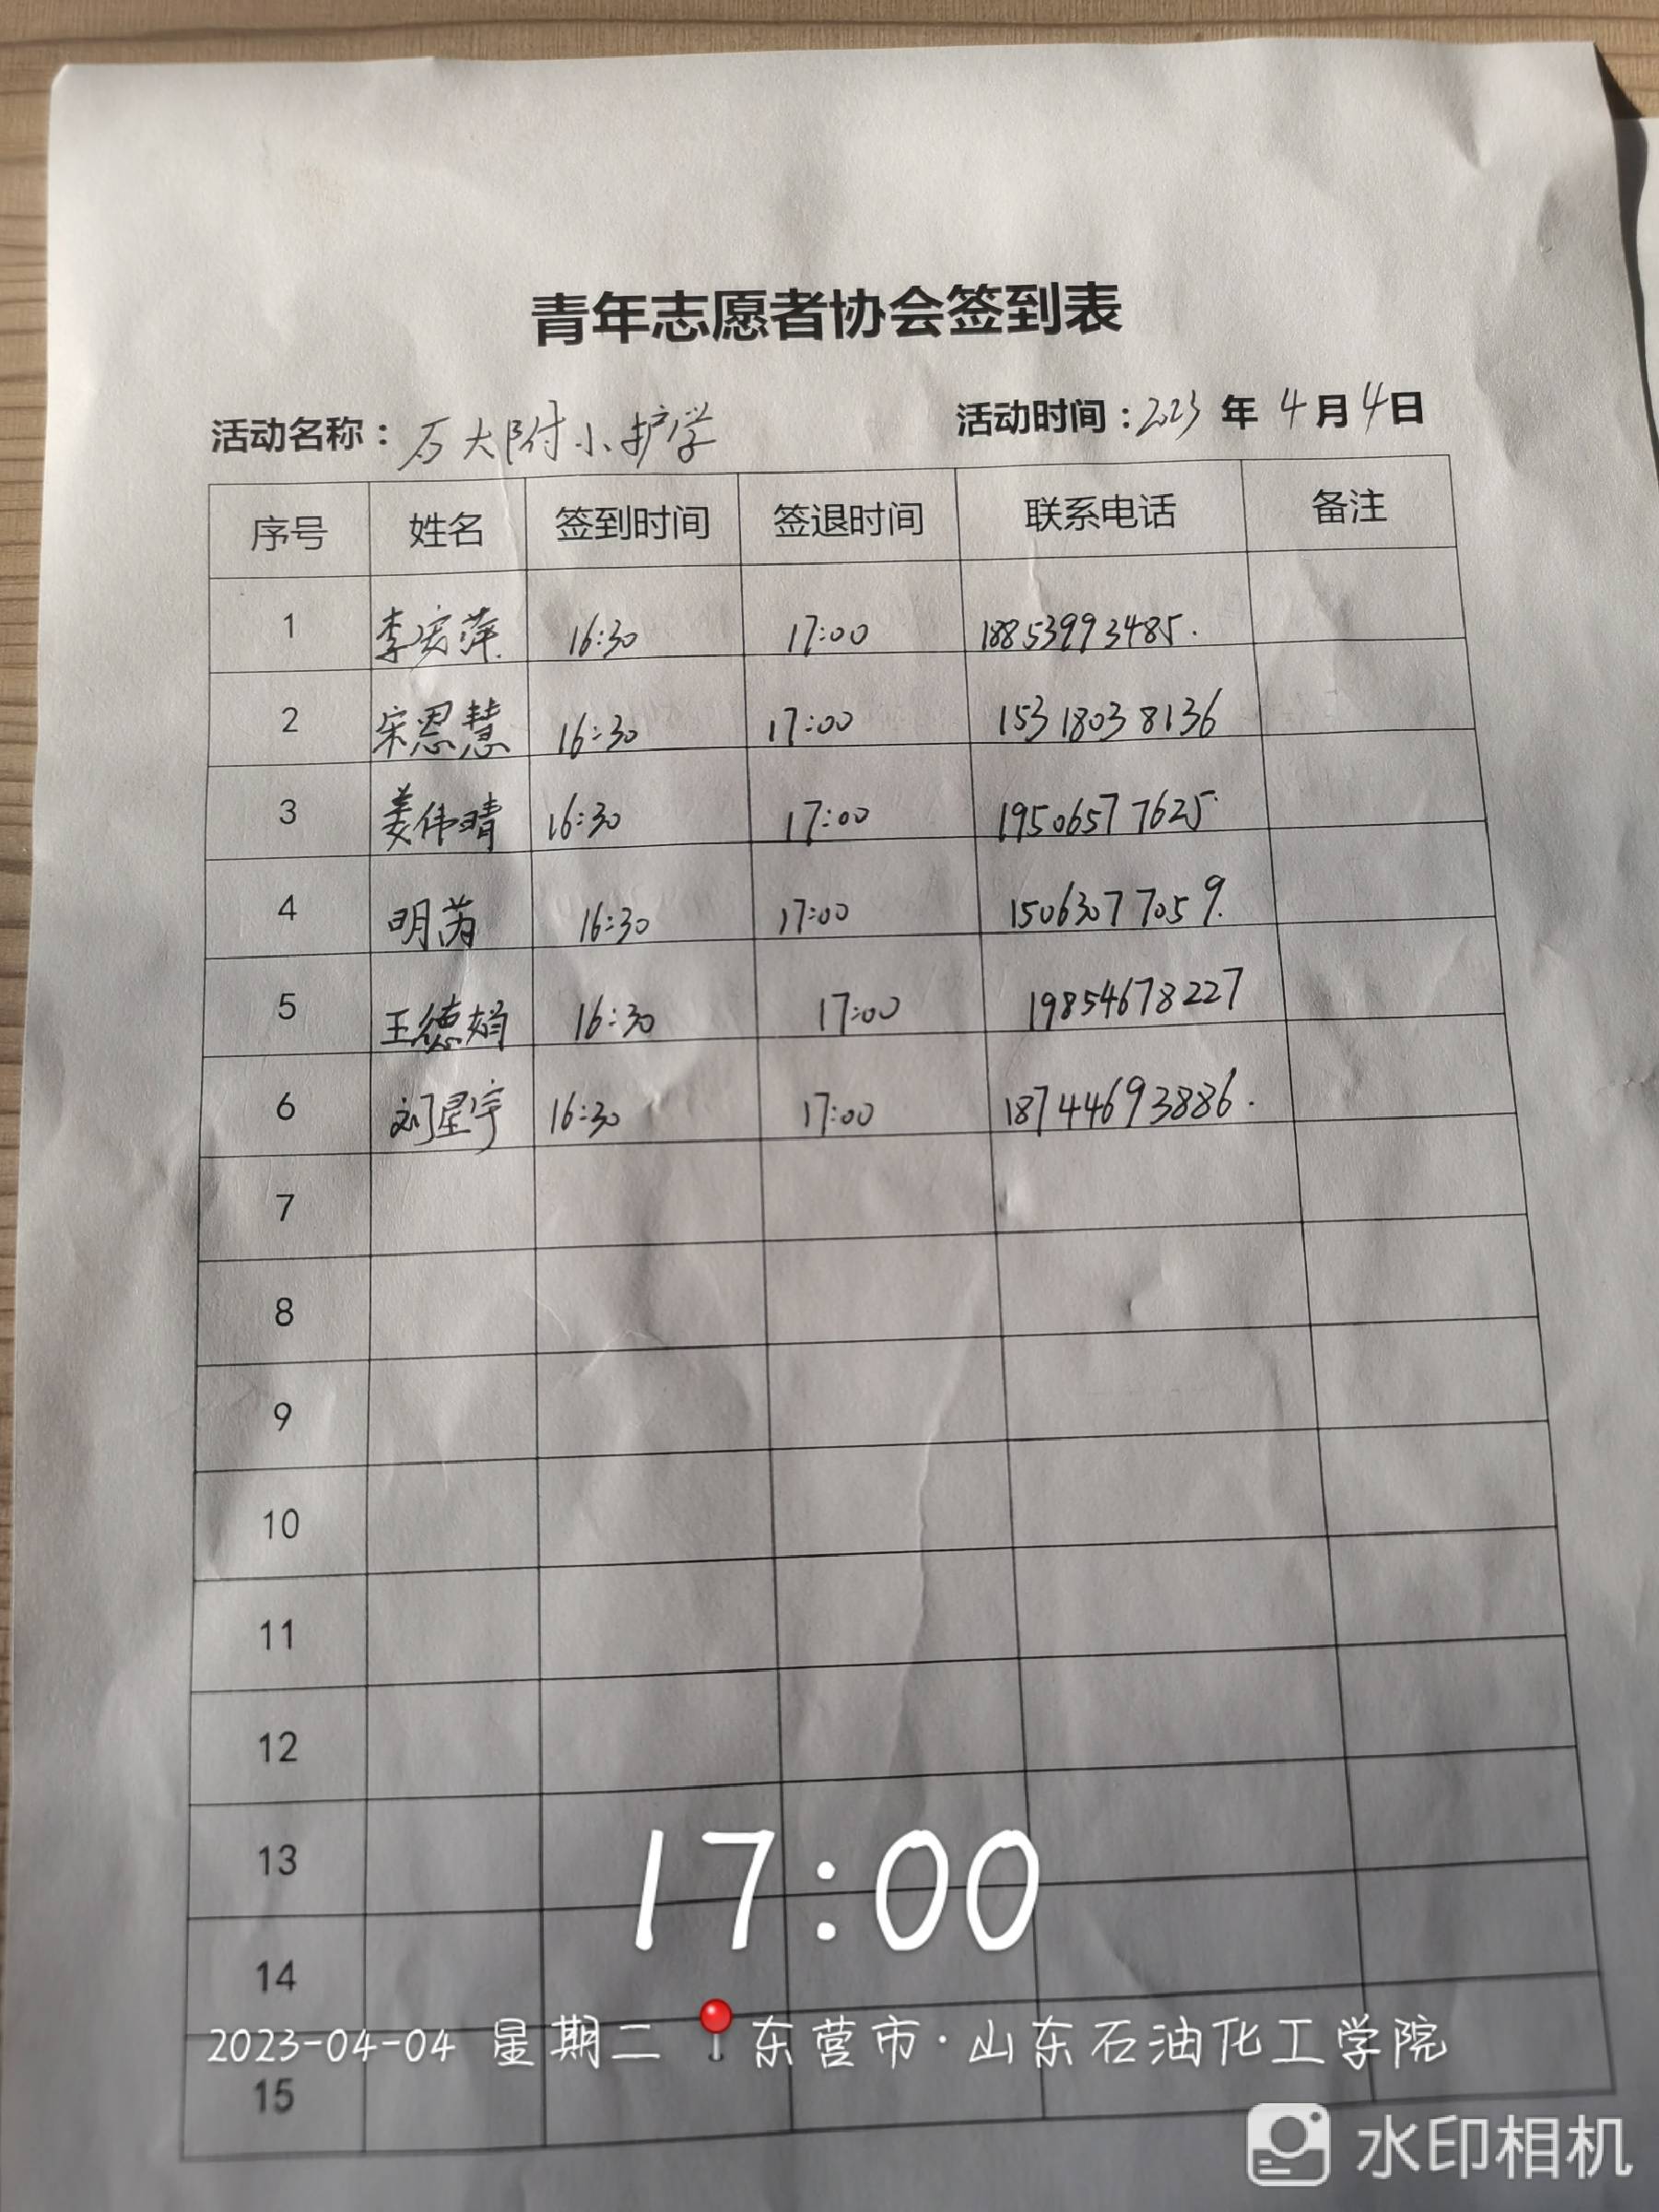 青年志愿者协会签到表
活动名称：石大附小护学 活动时间：2023 年 4 月 4 日
序号 姓名 签到时间 签退时间 联系电话 备注
1 李宏萍 16:30 17:00 18853993485.
2 宋恩慧 16:30 17:00 15318038136
3 姜伟晴 16:30 17:00 19506577625
4 明芮 16:30 17:00 15063077059.
5 王德娟 16:30 17:00 19854678227
6 刘星宇 16:30 17:00 18744693886.
7
8
9
10
11
12
13
17:00
14
2023-04-04 星期二 东营市·山东石油化工学院
15
水印相机